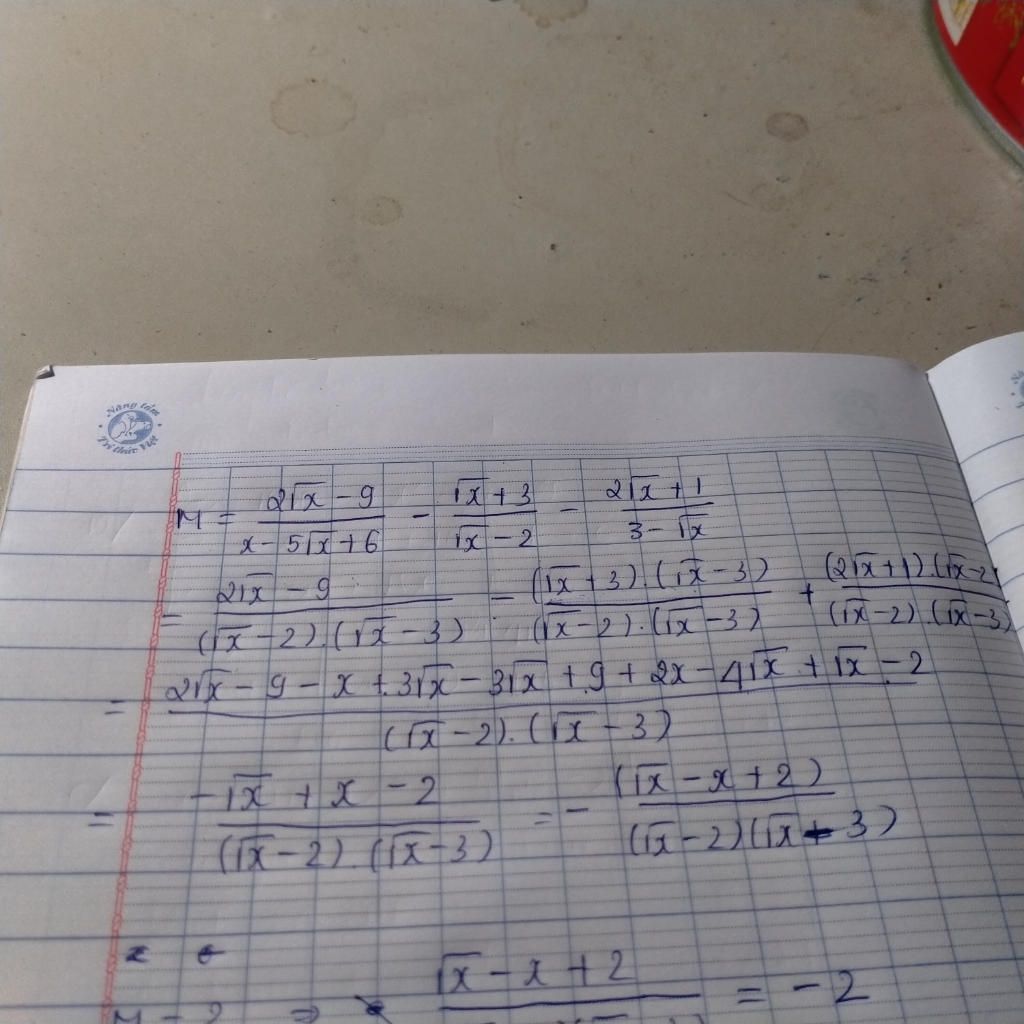 Nâng tầm
Tri thức Việt
M = (2√x - 9)/(x - 5√x + 6) - (√x + 3)/(√x - 2) - (2√x + 1)/(3 - √x)
= (2√x - 9)/((√x - 2).(√x - 3)) - ((√x + 3).(√x - 3))/((√x - 2).(√x - 3)) + ((2√x + 1).(√x - 2)/((√x - 2).(√x - 3)
= (2√x - 9 - x + 3√x - 3√x + 9 + 2x - 4√x + √x - 2)/((√x - 2).(√x - 3))
= (-√x + x - 2)/((√x - 2).(√x - 3)) = - (√x - x + 2)/((√x - 2)(√x - 3))
√x - x + 2 = -2